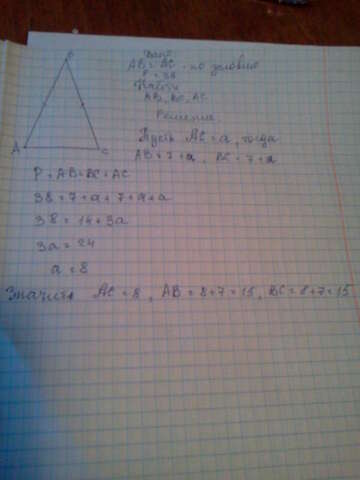 B
A
C
Дано
AB = BC - по условию
P = 38
Найти
AB, BC, AC
Решение
Пусть AC = a, тогда
AB = 7 + a, BC = 7 + a
P = AB + BC + AC
38 = 7 + a + 7 + a + a
38 = 14 + 3a
3a = 24
a = 8
Значит AC = 8, AB = 8 + 7 = 15, BC = 8 + 7 = 15